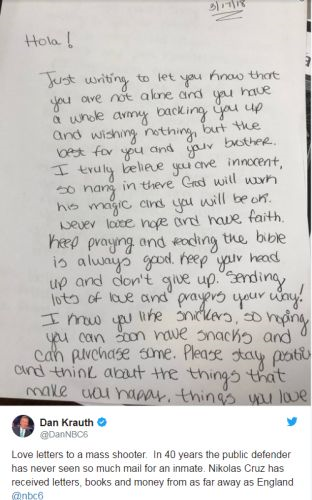 3/17/18
Hola!
Just writing to let you know that
you are not alone and you have
a whole army backing you up
and wishing nothing, but the
best for you and your brother.
I truly believe you are innocent,
so hang in there God will work
his magic and you will be ok.
Never lose hope and have faith.
Keep praying and reading the bible
is always good. Keep your head
up and don't give up. Sending
lots of love and prayers your way!
I know you like snickers, so hoping
you can soon have snacks and
can purchase some. Please stay positiv
and think about the things that
make you happy, things you love
Dan Krauth
@DanNBC6
Love letters to a mass shooter. In 40 years the public defender
has never seen so much mail for an inmate. Nikolas Cruz has
received letters, books and money from as far away as England
@nbc6